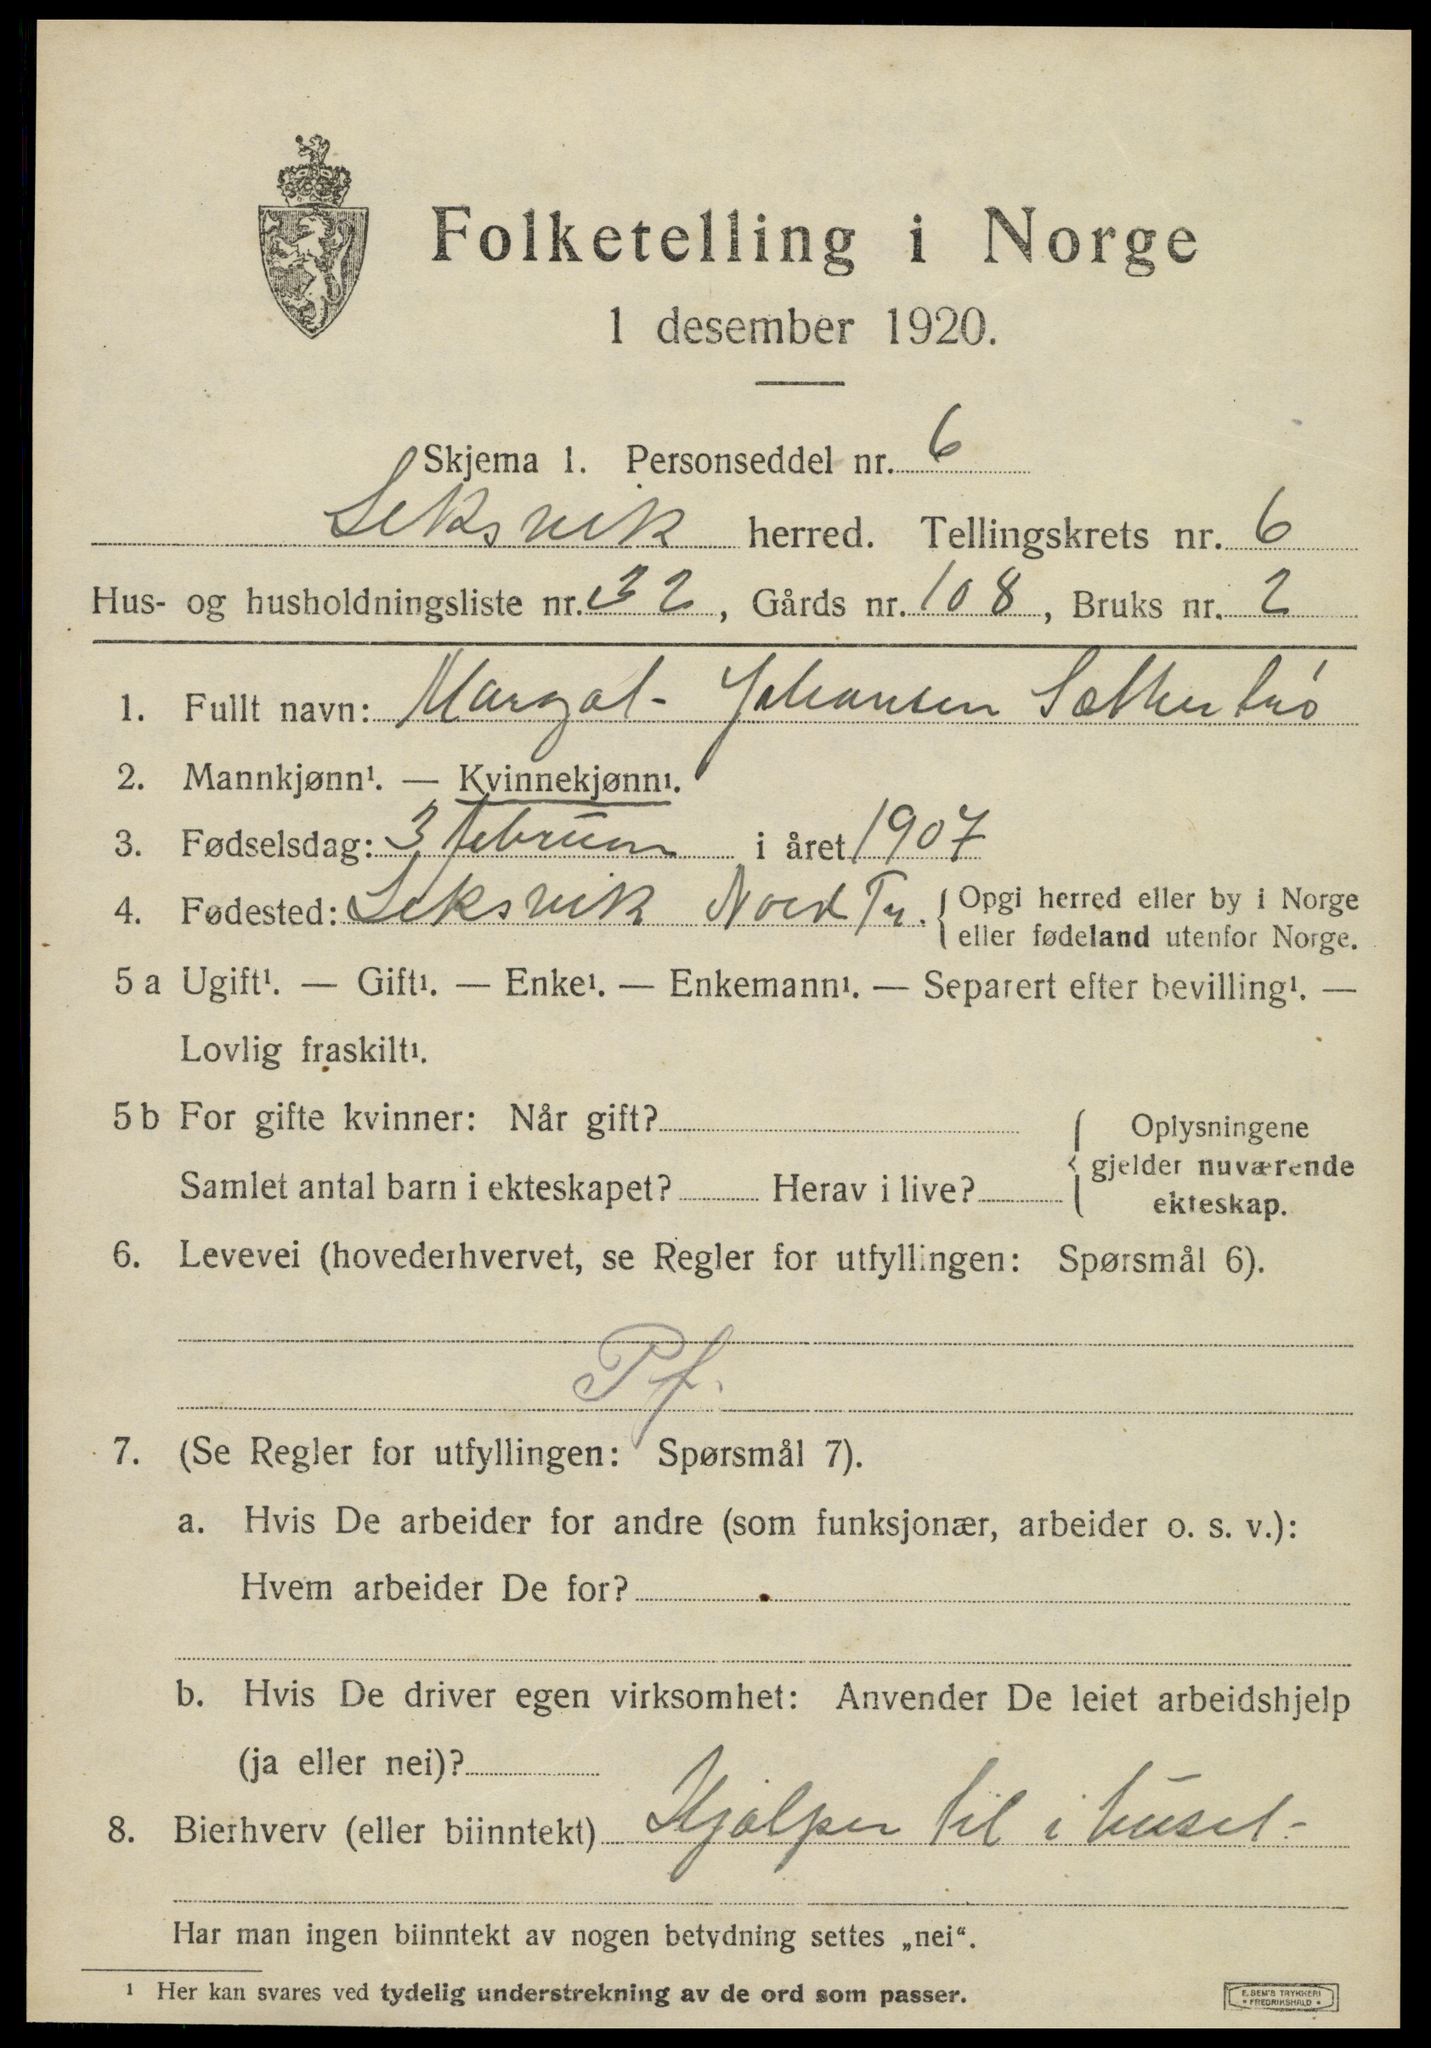 Folketelling i Norge
1 desember 1920.
Skjema 1. Personseddel nr. 6
Leksvik herred. Tellingskrets nr. 6
Hus- og husholdningsliste nr. 32, Gårds nr. 108, Bruks nr. 2
1. Fullt navn: Margot Johansen Sætherbø
2. Mannkjønn¹. — Kvinnekjønn¹.
3. Fødselsdag: 3 februar i året 1907
4. Fødested: Leksvik Nord Tr. Opgi herred eller by i Norge
eller fødeland utenfor Norge.
5 a Ugift¹. — Gift¹. — Enke¹. — Enkemann¹. — Separert efter bevilling¹. —
Lovlig fraskilt¹.
5 b For gifte kvinner: Når gift? Oplysningene
gjelder nuværende
Samlet antal barn i ekteskapet? Herav i live?
ekteskap.
6. Levevei (hovederhvervet, se Regler for utfyllingen: Spørsmål 6).
Pf.
7. (Se Regler for utfyllingen: Spørsmål 7).
a. Hvis De arbeider for andre (som funksjonær, arbeider o. s. v.):
Hvem arbeider De for?
b. Hvis De driver egen virksomhet: Anvender De leiet arbeidshjelp
(ja eller nei)?
8. Bierhverv (eller biinntekt) Hjælper til i huset
Har man ingen biinntekt av nogen betydning settes „nei“.
¹ Her kan svares ved tydelig understrekning av de ord som passer.
E. SEM'S TRYKKERI
FREDRIKSHALD